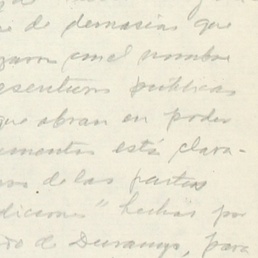 de demasias que
con el nombre
escrituras públicas
que obran en poder
umentos está clara-
de las partes
diciones" hechas por
de Durango, para